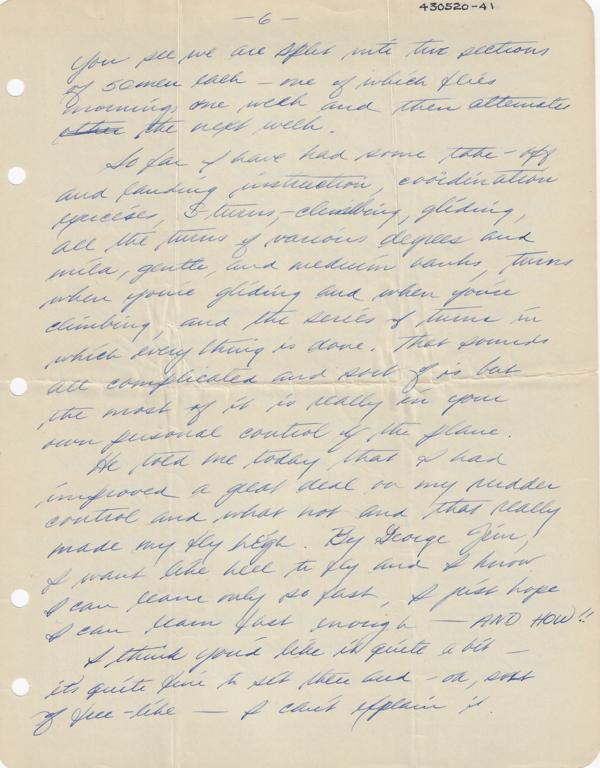 430520-41
- 6 -
You see we are split into two sections
of 50 men each - one of which flies
mornings one week and then alternates
the next week.
So far I have had some take-off
and landing instruction, coördination
exercises, S-turns, - climbing, gliding,
all the turns of various degrees and
mild, gentle, and medium banks, turns
when you're gliding and when you're
climbing, and the series of turns in
which everything is done. That sounds
all complicated and sort of is but
the most of it is really in your
own personal control of the plane.
He told me today that I had
improved a great deal on my rudder
control and what not and that really
made my fly high. By George Jim,
I want like hell to fly and I know
I can learn only so fast, I just hope
I can learn fast enough - AND HOW!!
I think you'd like it quite a bit -
it's quite fine to sit there and - oh, sort
of free-like - I can't explain it.